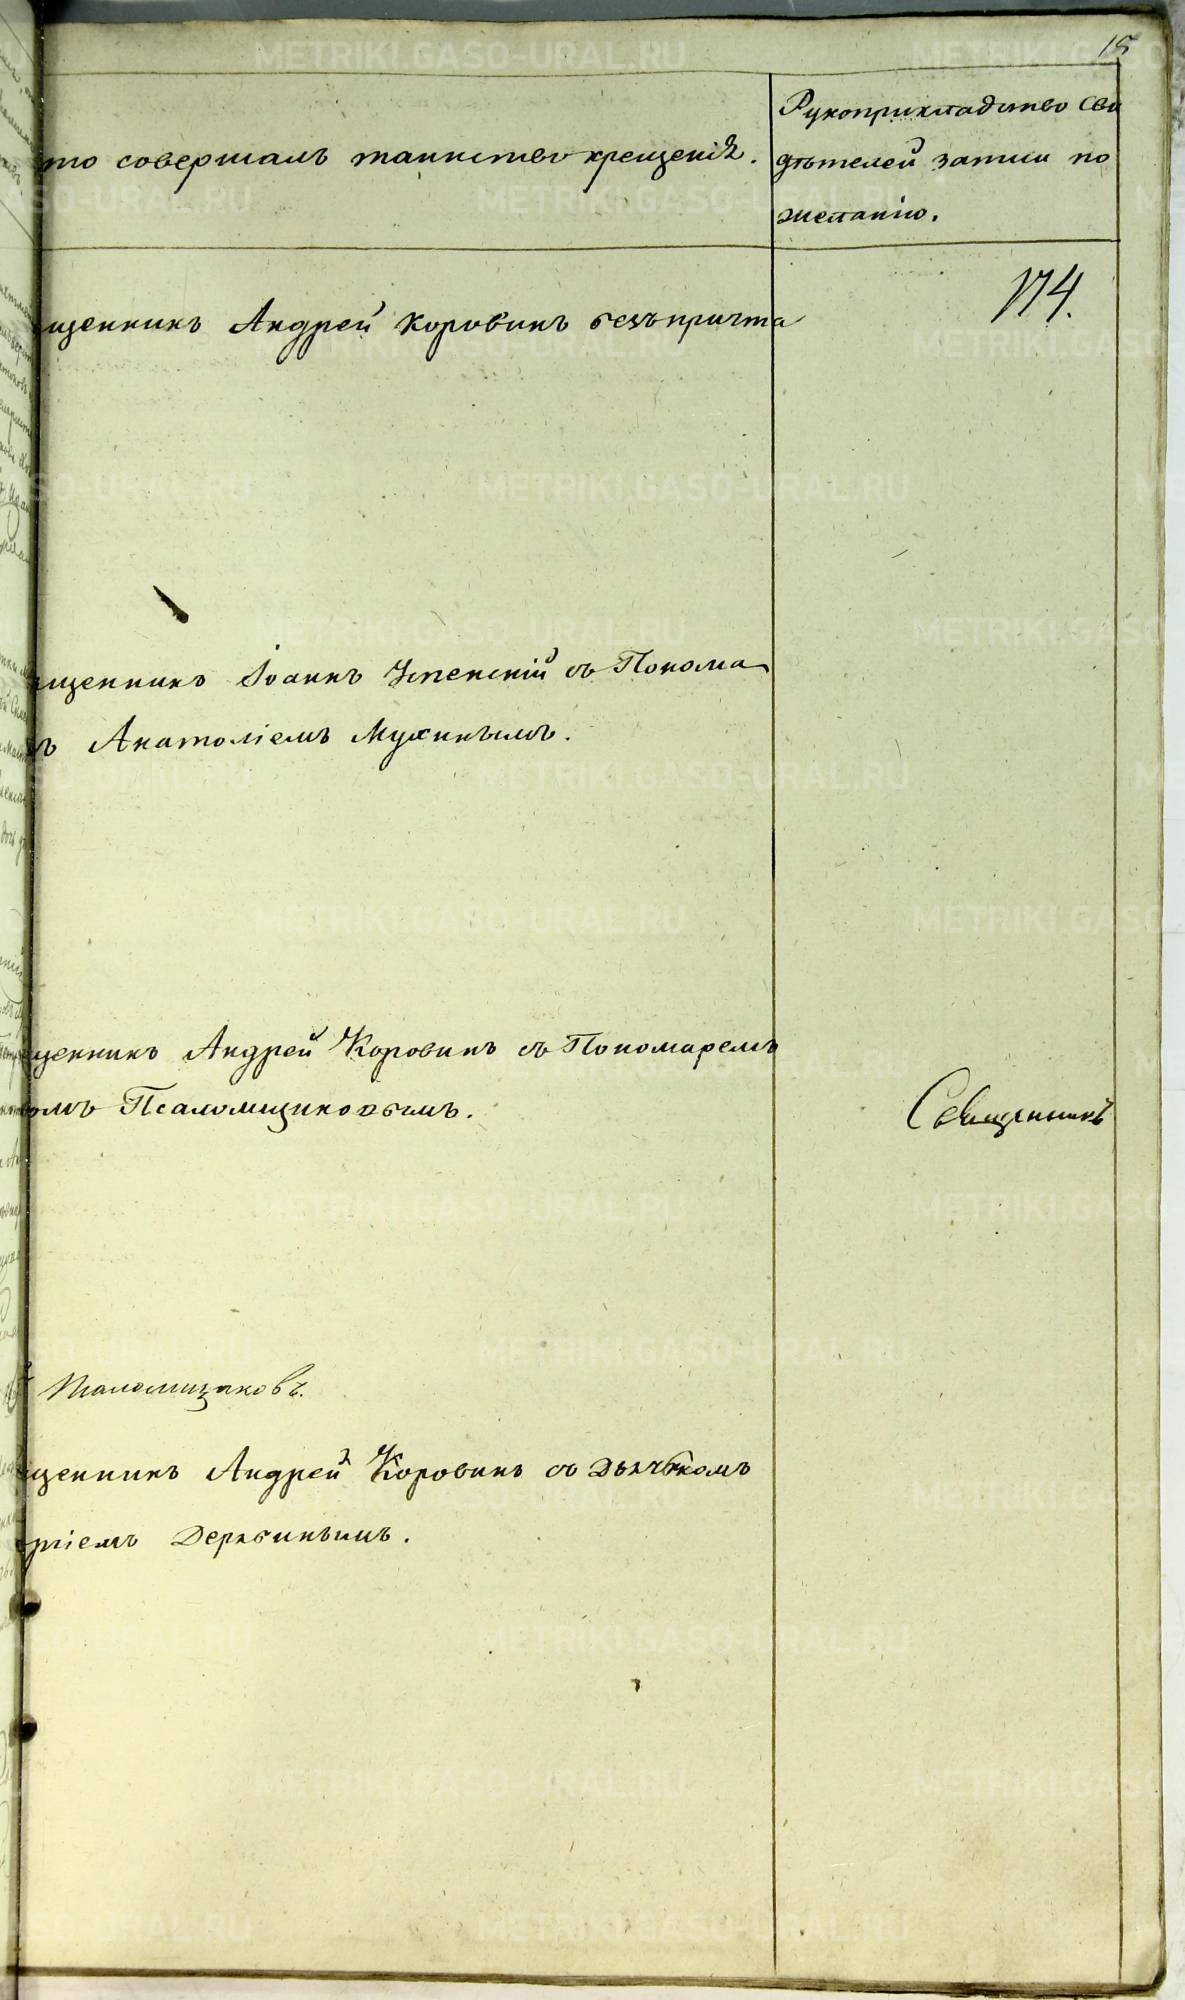 15
Рукоприкладство сви
то совершалъ таинство крещенія.
дѣтелей записи по
желанію.
174.
щенникъ Андрей Коровинъ безъ причта
щенникъ Іоаннъ Успенскій съ Понома
ъ Анатоліемъ Мухинымъ.
щенникъ Андрей Коровинъ съ Пономаремъ
омъ Псаломщиковымъ.
Священникъ
Псаломщиковъ.
щенникъ Андрей Коровинъ съ Дьячкомъ
ргіемъ Дерябинымъ.
METRIKI.GASO-URAL.RU